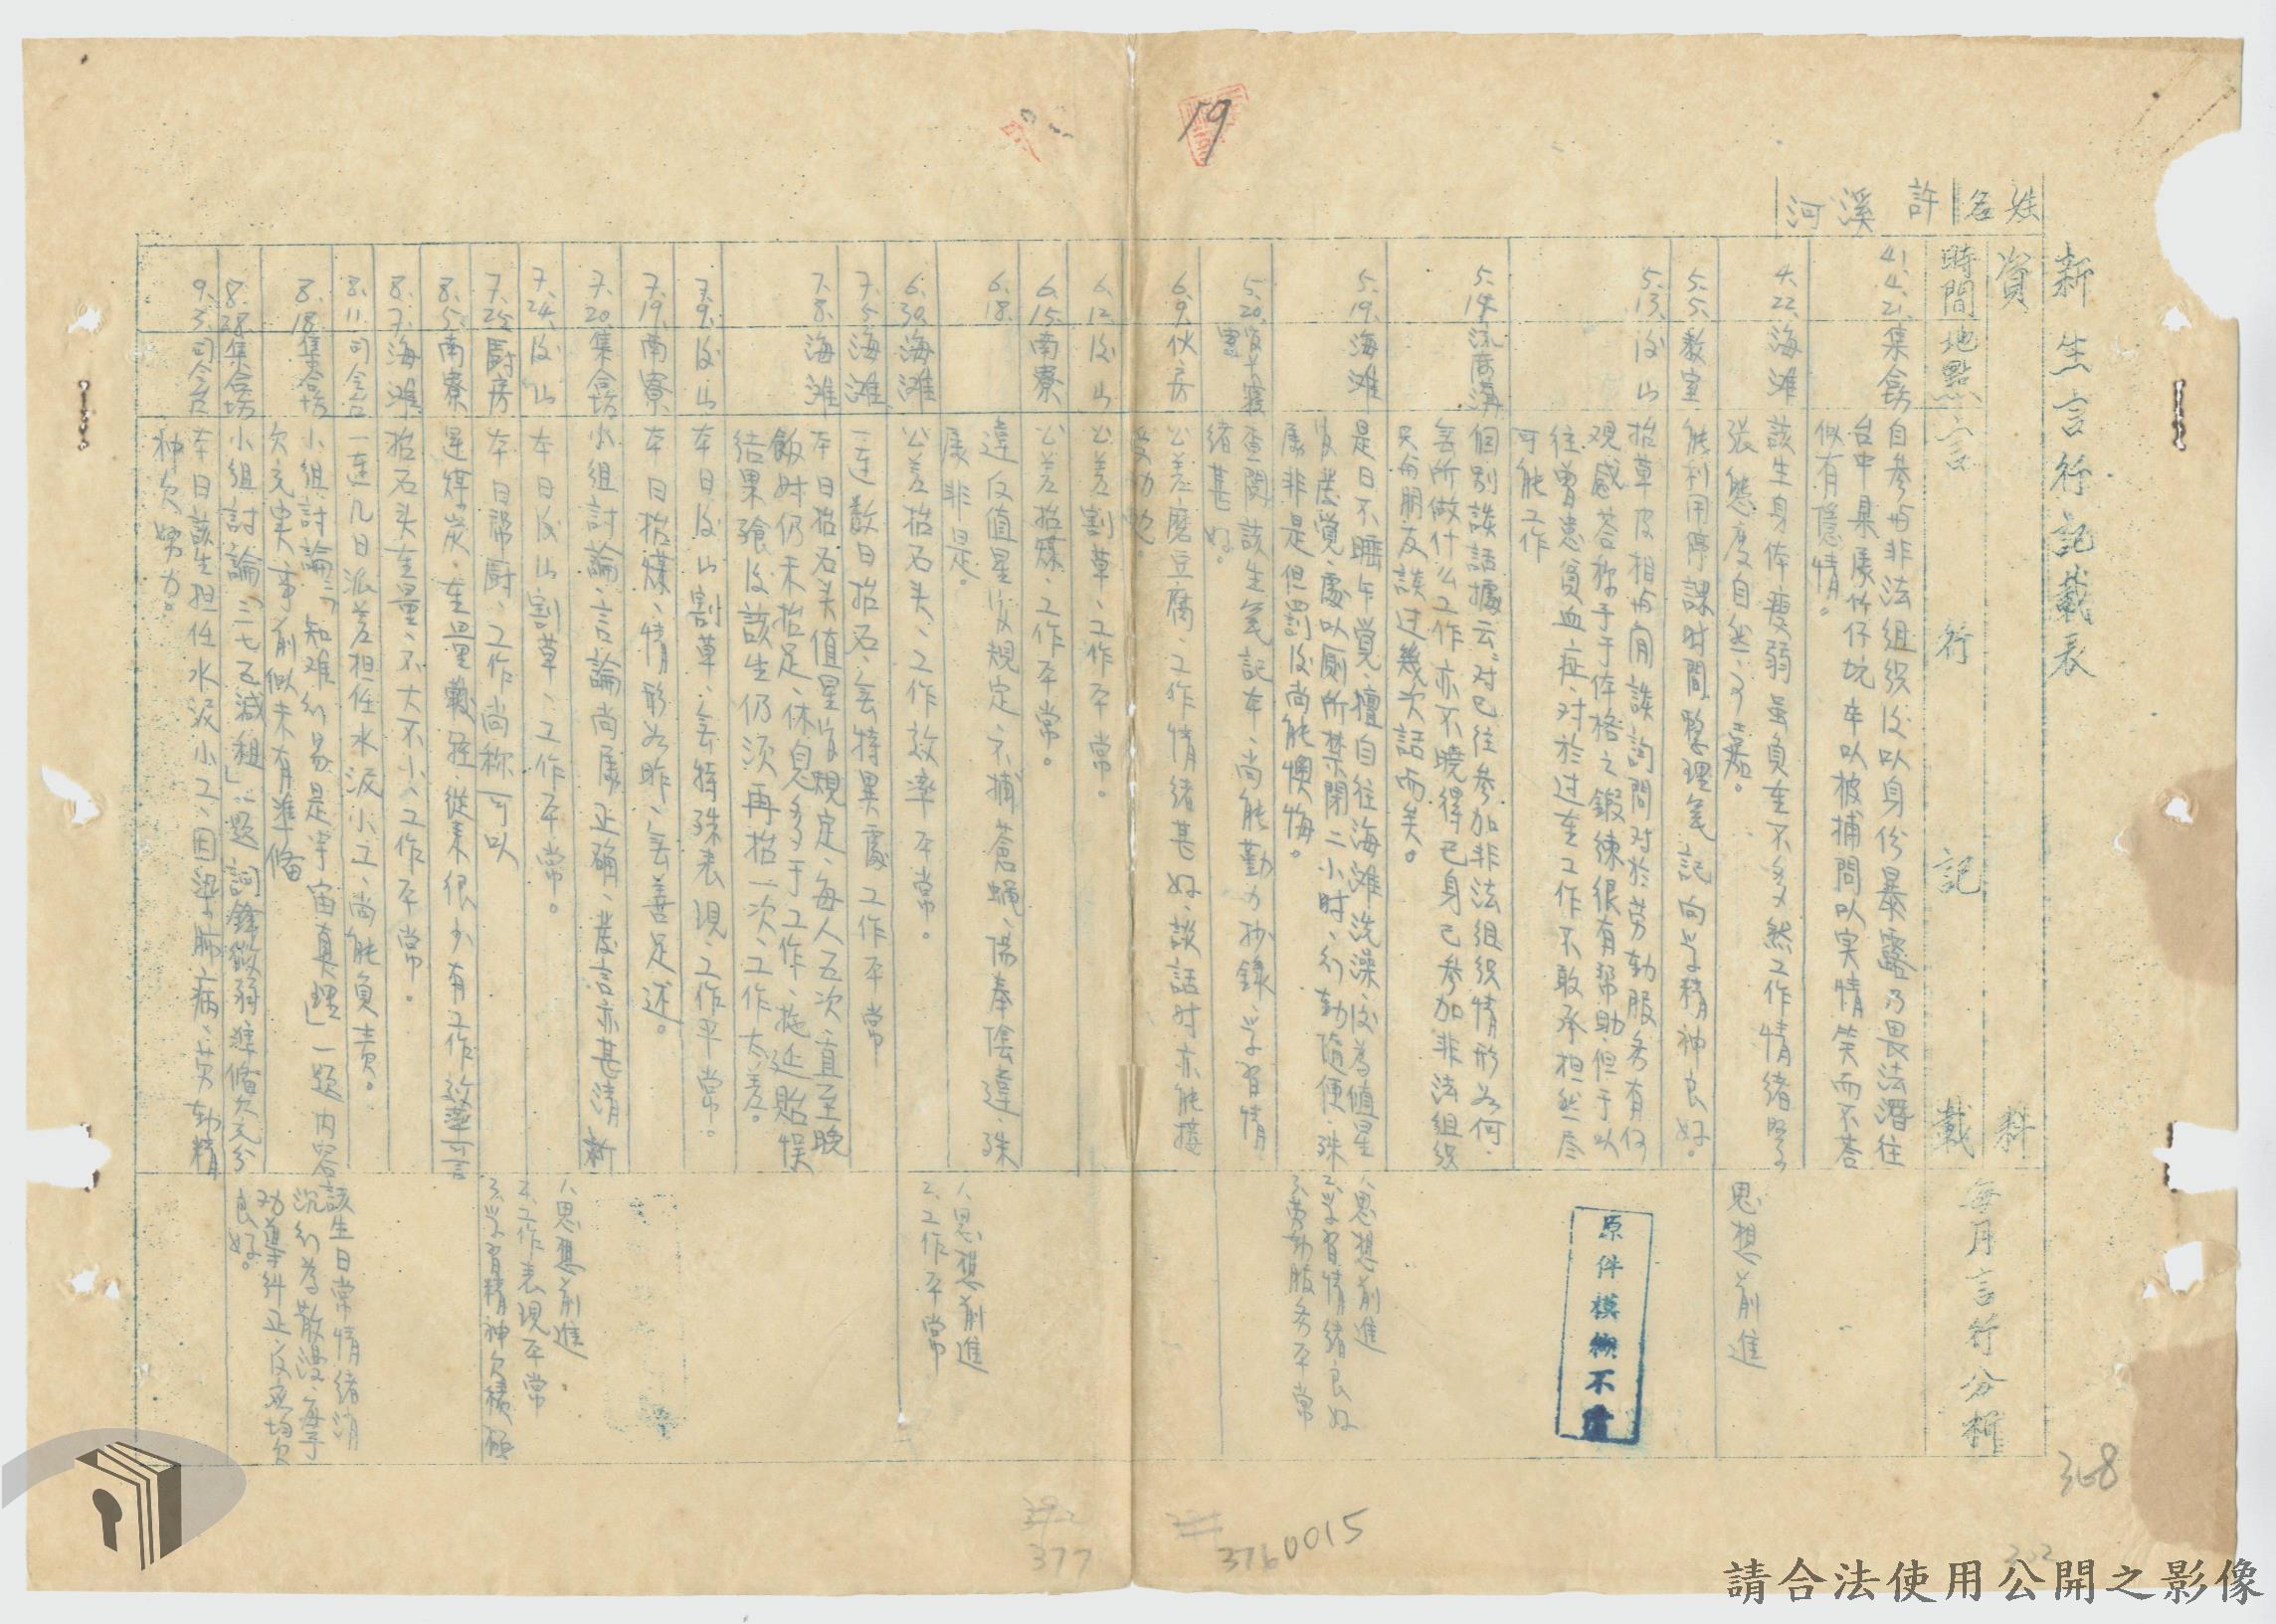 新生言行記載表
姓名 許溪河
資料
時間 地點 言行記載
每月言行分析
41.4.21. 集合場
自參加非法組织后以身份暴露乃畏法潛往
台中県属竹仔坑卒以被捕問以実情笑而不答
似有隱情。
4.22. 海滩
該生身体瘦弱虽負重不多然工作情緒緊
張態度自然、可嘉。
思想前進
5.5. 教室
能利用停課时間整理筆記向学精神良好。
5.13. 後山
抬草及相与間談詢問对於劳动服务有何
观感答称予于体格之鍛練很有帮助、但于以
往曾患貧血症、对於过重工作不敢承担然尽
可能工作
5.14. 流麻溝
個別談話據云：对已往參加非法組织情形為何、
無所做什么工作亦不曉得已身已參加非法組织
只与朋友談过幾次話而矣。
5.19. 海滩
是日不睡午覚、擅自往海滩洗澡、後為值星
官悉覚、處以厠所禁閉二小时、行动隨便、殊
属非是但罰後尚能懊悔。
1.思想前進
2.学習情緒良好
3.劳动服务平常
5.20.
查閱該生筆記本、尚能勤力抄錄、学習情
緒甚好。
6.9. 伙房
公差磨豆腐、工作情緒甚好、談話时亦能接
受功勉。
6.12. 後山
公差割草、工作平常。
6.15. 南寮
公差抬煤、工作平常。
6.18.
違反值星官規定、不捕蒼蝇、陽奉陰違、殊
属非是。
6.30. 海滩
公差抬石头、工作效率平常。
1.思想前進
2.工作平常
7.5. 海滩
一連数日抬石、無特異處工作平常
7.8. 海滩
本日抬石头值星官規定、每人五次、直至晚
飯时仍未抬足、休息多于工作、拖延貽悮
結果飱後該生仍須再抬一次、工作太差。
7.9. 後山
本日後山割草、無特殊表現、工作平常。
7.19. 南寮
本日抬煤、情形如昨、無善足述。
7.20. 集合場
小組討論、言論尚属正确、發言亦甚清新
7.24. 後山
本日後山割草、工作平常。
1.思想前進.
2.工作表現平常
3.学習精神欠積極
7.25. 廚房
本日帮廚、工作尚称可以
8.5. 南寮
運煤炭、重量較輕、從未很少有工作效率可言
8.7. 海滩
抬石头重量、不大不小、工作平常。
8.11. 司令台
一連几日派差担任水泥小工、尚能負责。
8.18. 集合場
小組討論「知难行易是宇宙真理」一题内容
欠充実事前似未有準備
8.28. 集合場
小組討論「三七五減租」题詞鋒微弱準備欠充分
該生日常情緒消
沉行為散漫、每予
功導糾正、反应均欠
良好。
9.3. 司令台
本日該生担任水泥小工、因染肺病、劳动精
神欠努力。
原件模糊不清
19
368
377
376
0015
請合法使用公開之影像